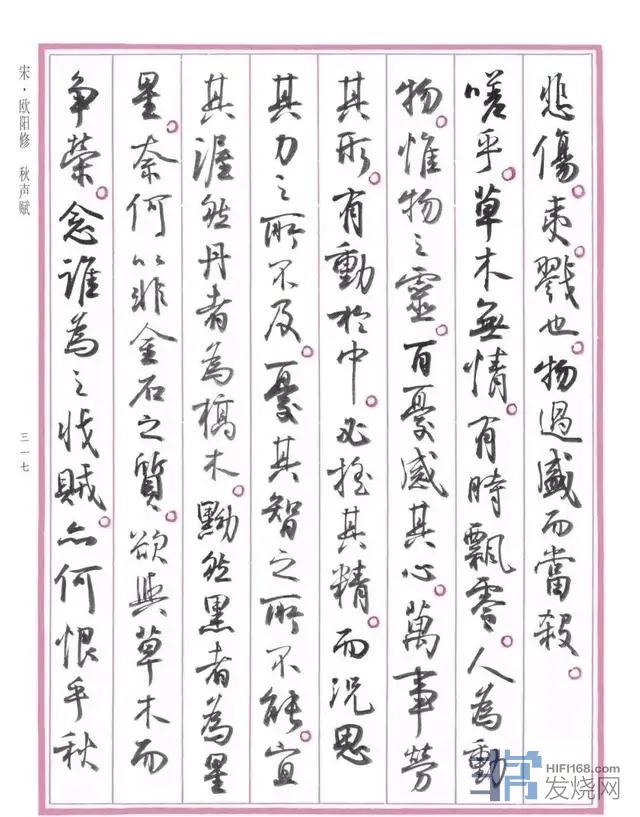 悲傷。夷。戮也。物過盛而當殺。
嗟乎。草木無情。有時飄零。人為動
物。惟物之靈。百憂感其心。萬事勞
其形。有動於中。必搖其精。而況思
其力之所不及。憂其智之所不能。宜
其渥然丹者為槁木。黟然黑者為星
星。奈何以非金石之質。欲與草木而
争榮。念誰為之戕賊。亦何恨乎秋
宋·欧阳修 秋声赋
三一七
HIFI168.com
发烧网